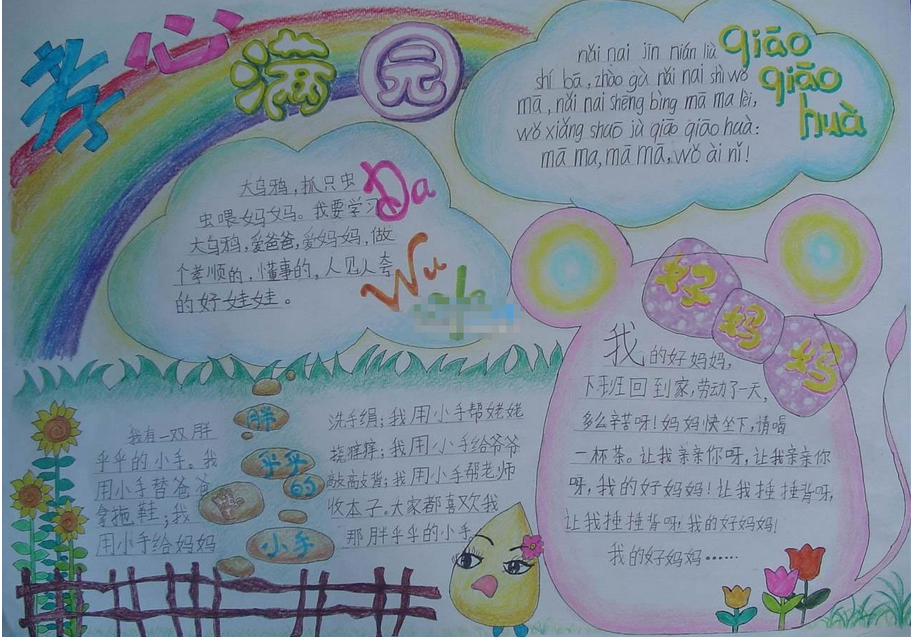 孝心满园
qiāo
qiāo
huà
nǎi nai jīn nián liù
shí bā, zhào gù nǎi nai shì wǒ
mā, nǎi nai shēng bìng mā ma lèi,
wǒ xiǎng shuō jù qiāo qiāo huà:
mā ma, mā mā, wǒ ài nǐ!
Da
Wu
大乌鸦，抓只虫
虫喂妈妈。我要学习
大乌鸦，爱爸爸，爱妈妈，做
个孝顺的，懂事的，人见人夸
的好娃娃。
好妈妈
我的好妈妈，
下班回到家，劳动了一天，
多么辛苦呀！妈妈快坐下，请喝
一杯茶。让我亲亲你呀，让我亲亲你
呀，我的好妈妈！让我捶捶背呀，
让我捶捶背呀，我的好妈妈！
我的好妈妈……
胖
乎乎
的
小手
我有一双胖
乎乎的小手。我
用小手替爸爸
拿拖鞋；我
用小手给妈妈
洗手绢；我用小手帮姥姥
挠痒痒；我用小手给爷爷
敲敲背；我用小手帮老师
收本子。大家都喜欢我
那胖乎乎的小手。